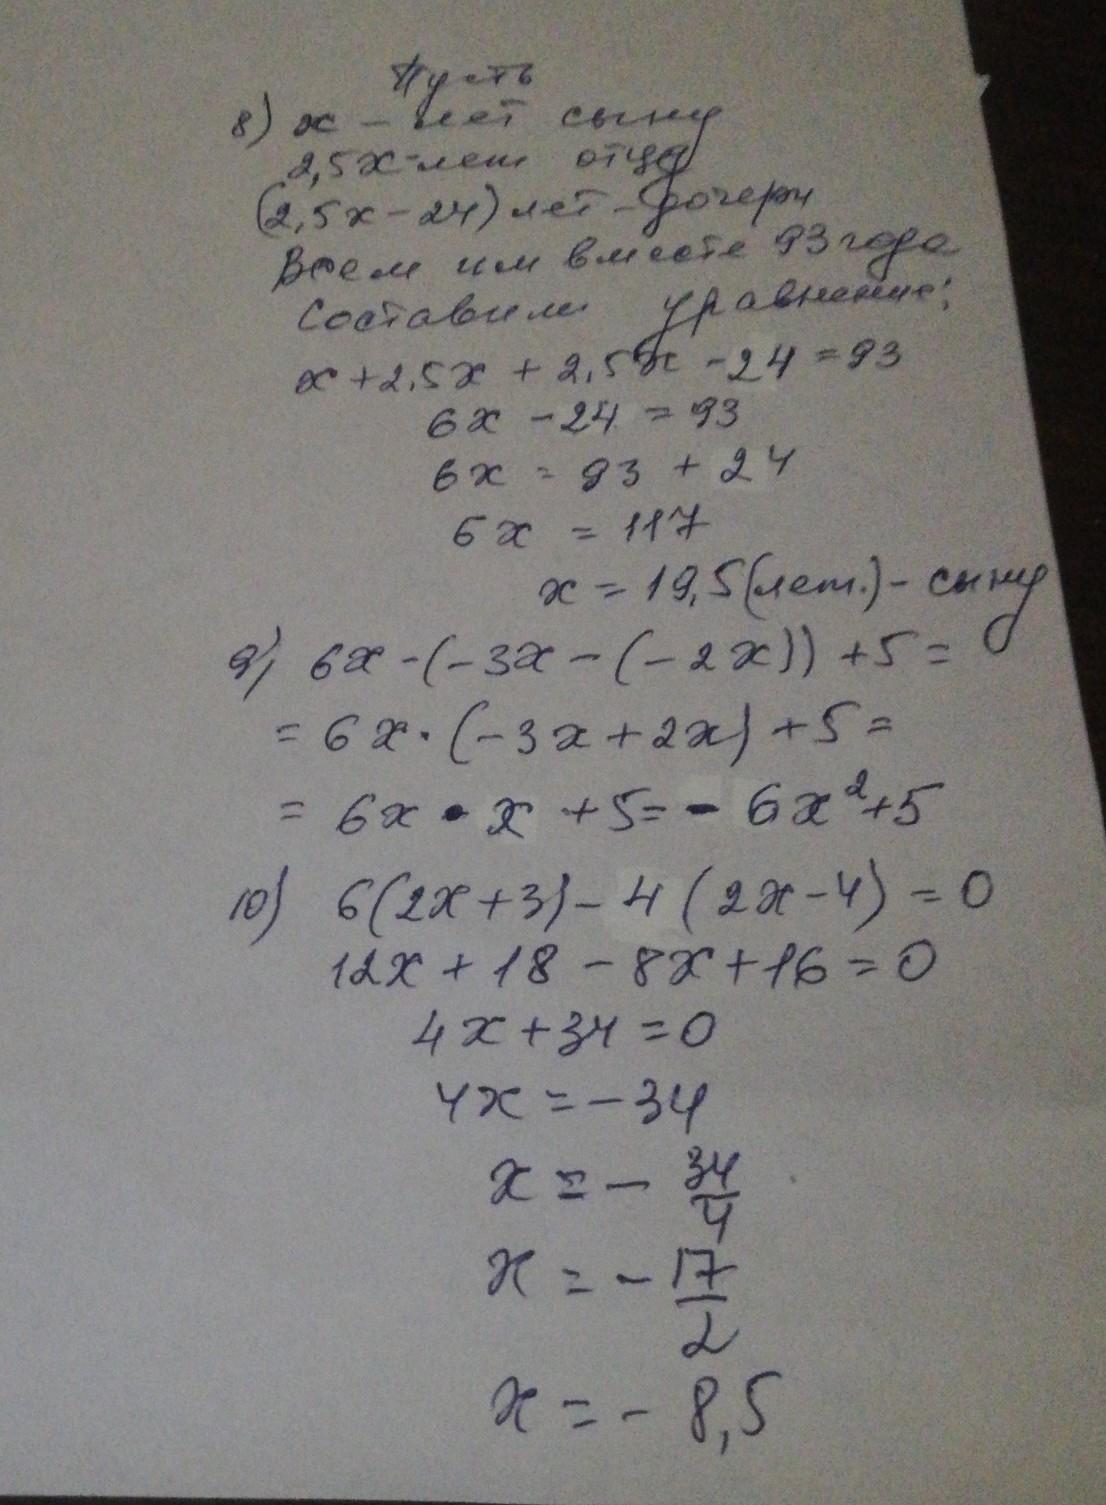 Пусть
8) x – лет сыну
2,5x - лет отцу
(2,5x - 24) лет - дочери
Всем им вместе 93 года
Составим уравнение:
x + 2,5x + 2,5x - 24 = 93
6x - 24 = 93
6x = 93 + 24
6x = 117
x = 19,5 (лет.) - сыну
9) 6x - (-3x - (-2x)) + 5 =
= 6x · (-3x + 2x) + 5 =
= 6x · x + 5 = - 6x² + 5
10) 6(2x + 3) - 4(2x - 4) = 0
12x + 18 - 8x + 16 = 0
4x + 34 = 0
4x = -34
x = - 34/4
x = - 17/2
x = - 8,5